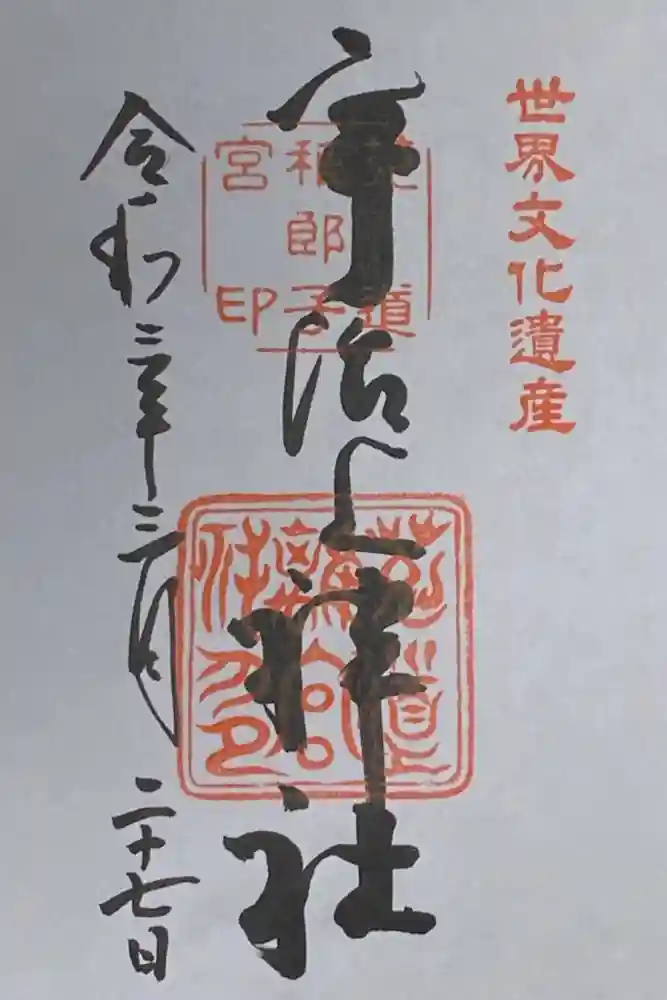 世界文化遺産
宇治上神社
菟道
稚郎子
宮印
令和三年三月二十七日